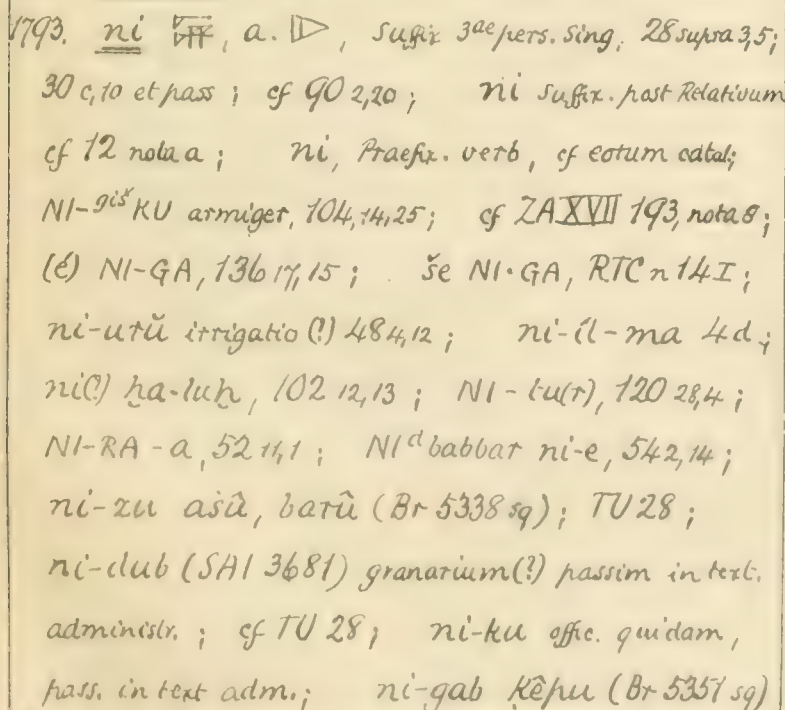 1793. ni, a., suffix 3ae pers. Sing. 28 supra 3,5;
30 c,10 et pass; cf 90 2,20; ni suffix. post Relativum
cf 12 nota a; ni, Praefix. verb, cf eorum catal;
NI-giš KU armiger, 104,14,25; cf ZA XVII 193, nota 8;
(é) NI-GA, 136 17,15; še NI·GA, RTC n 14 I;
ni-urŭ irrigatio (!) 48 4,12; ni-íl-ma 4 d,;
ni(?) ḫa-luḫ, 102 12,13; NI-tu(r), 120 28,4;
NI-RA-a, 52 11,1; NI d babbar ni-e, 54 2,14;
ni-zu asû, barû (Br 5338 sq); TU 28;
ni-dub (SAI 3681) granarium(?) passim in text.
administr.; cf TU 28; ni-ku offic. quidam,
pass. in text adm.; ni-gab ḳêpu (Br 5351 sq)